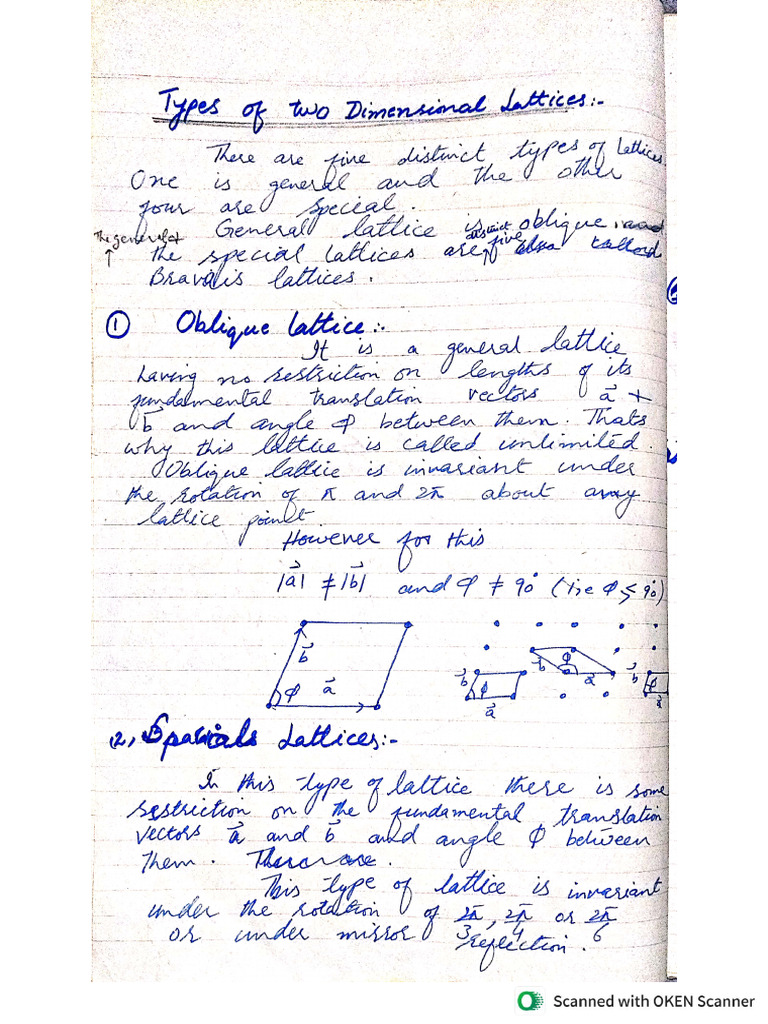 Types of two Dimensional Lattices:-
There are five distinct types of Lettices.
One is general and the other
four are special.
General lattice is oblique
The general &
the special lattices are distinct five
Bravais lattices.
① Oblique lattice:-
It is a general lattice
having no restriction on lengths of its
fundamental translation vectors a⃗ +
b⃗ and angle φ between them. Thats
why this lattice is called unlimited.
Oblique lattice is invariant under
the rotation of π and 2π about any
lattice point.
However for this
|a⃗| ≠ |b⃗| and φ ≠ 90° (i.e φ ≶ 90°)
b⃗ φ a⃗
b⃗ φ a⃗
b⃗ φ a⃗
b⃗ φ a⃗
2, Specials Lattices:-
In this type of lattice there is some
restriction on the fundamental translation
vectors a⃗ and b⃗ and angle φ between
them.
This type of lattice is invariant
under the rotation of 2π/3, 2π/4 or 2π/6
or under mirror reflection.
Scanned with OKEN Scanner